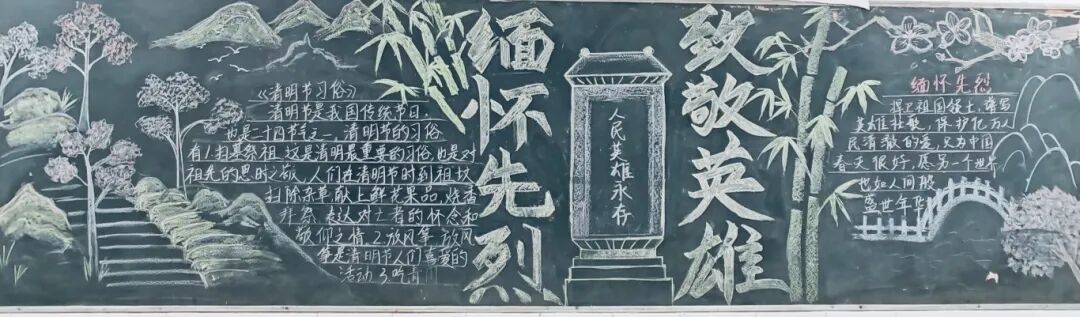 《清明节习俗》
清明节是我国传统节日,
也是二十四节气之一,清明节的习俗
有1扫墓祭祖,这是清明最重要的习俗,也是对
祖先的思时之敬,人们在清明节时到祖坟
扫除杂草,献上鲜花果品,烧香
拜祭,表达对亡者的怀念和
敬仰之情,2.放风筝,放风
筝是清明节人们喜爱的
活动3吃青
缅怀先烈
人民英雄永存
致敬英雄
缅怀先烈
捍卫祖国领土,谱写
英雄壮歌,保护亿万人
民清澈的爱,只为中国
春天很好,愿另一个世界
也如人间般
盛世年华